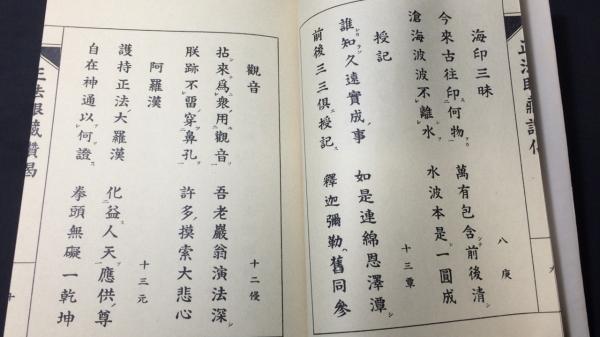 正法眼藏讚偈
海印三昧
八庚
今來古往印何物
萬有包含前後清
滄海波波不離水
水波本是一圓成
授記
十三覃
誰知久遠實成事
如是連綿恩澤潭
前後三三俱授記
釋迦彌勒舊同參
觀音
十二侵
拈來爲衆用觀音
吾老嚴翁演法深
朕跡不留穿鼻孔
許多摸索大悲心
阿羅漢
十三元
護持正法大羅漢
化益人天應供尊
自在神通以何證
拳頭無礙一乾坤
正法眼藏讚偈